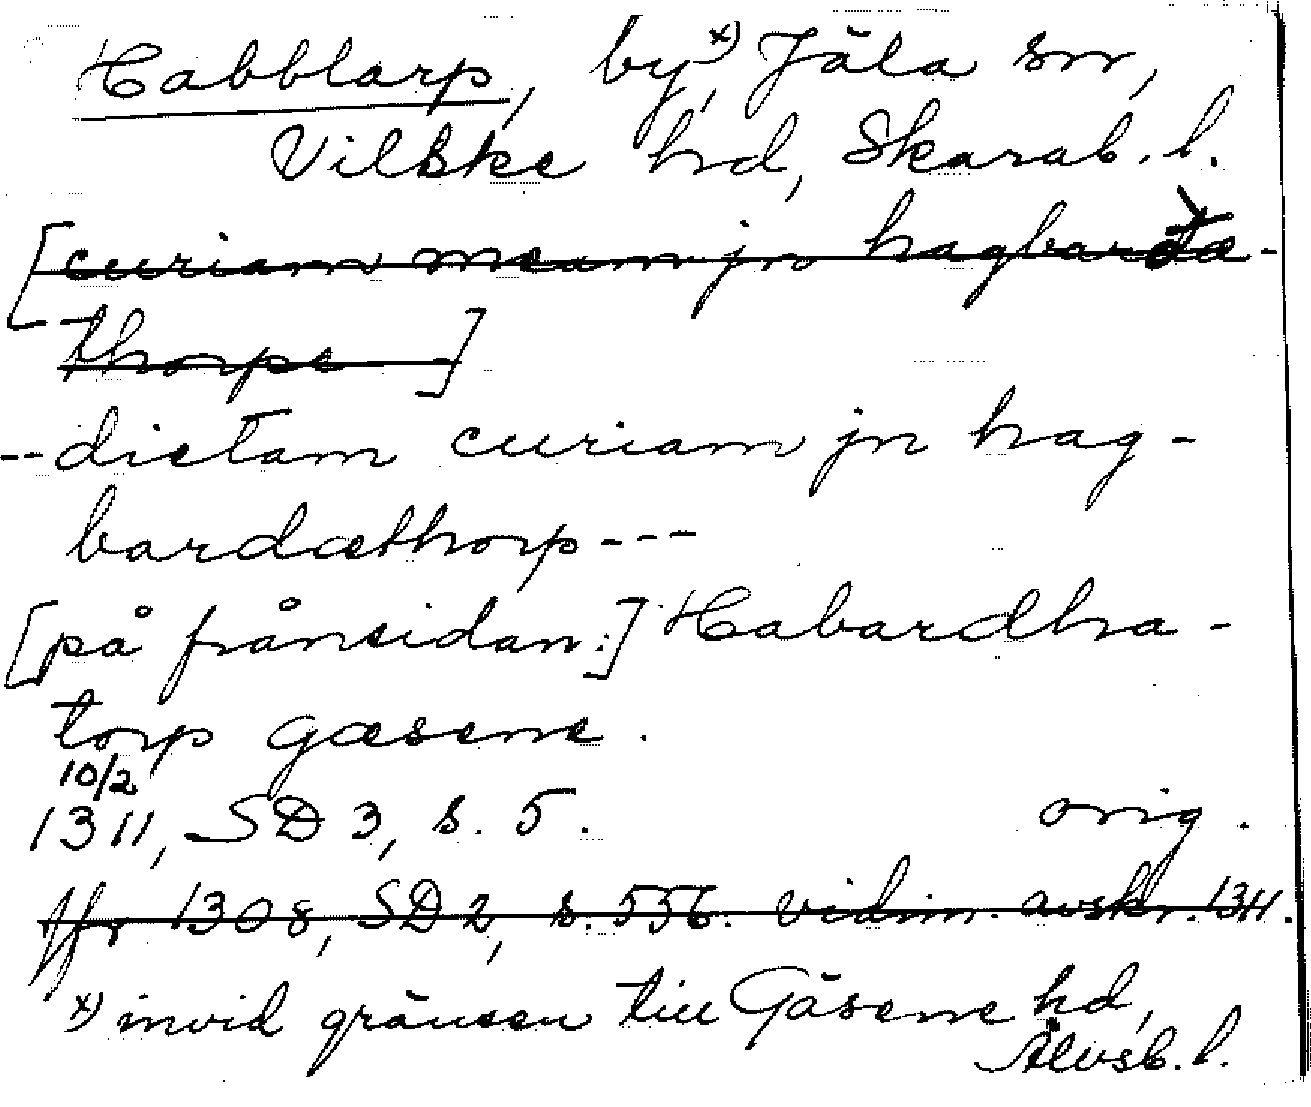 Habblarp, by,x) Jäla sn,
Vilske hd, Skarab. l.
[curiam meam jn hagbardæ-
thorpe ]
--dictam curiam jn hag-
bardæthorp---
[på frånsidan:] Habardha-
torp gæsene.
10/2
1311, SD 3, s. 5. orig.
Jfr 1308, SD 2, s. 556. vidim. avskr. 1311.
x) invid gränsen till Gäsene hd,
Älvsb. l.